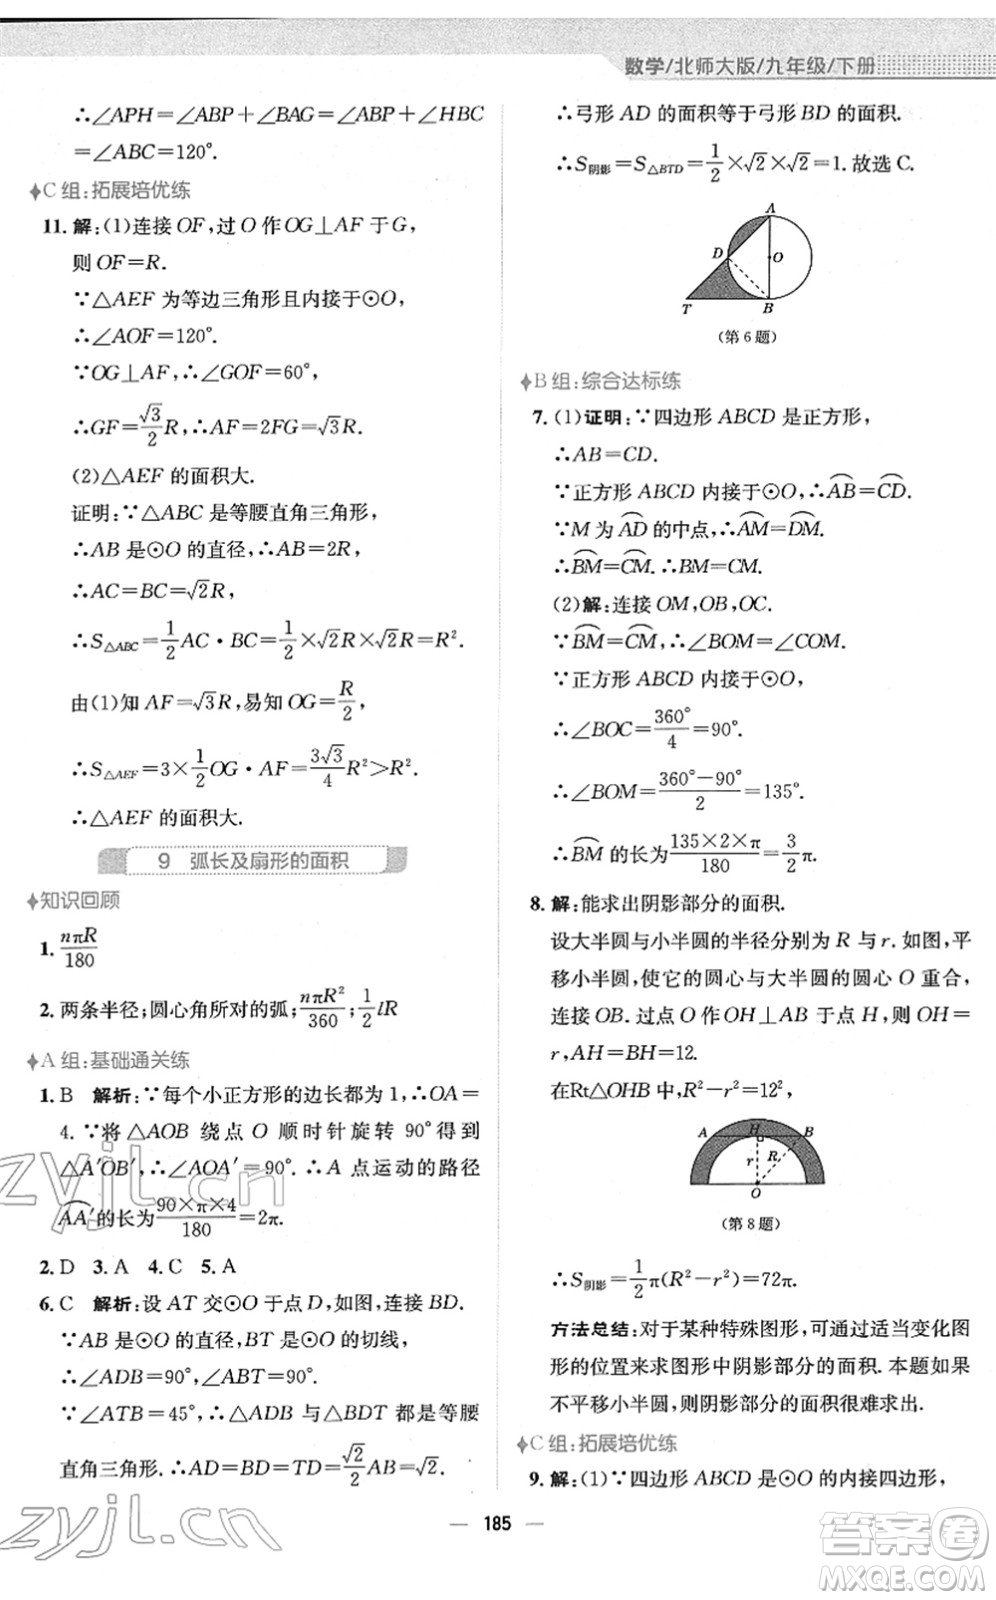 数学/北师大版/九年级/下册
∴∠APH=∠ABP+∠BAG=∠ABP+∠HBC
=∠ABC=120°.
C 组:拓展培优练
11. 解:(1)连接 OF,过 O 作 OG⊥AF 于 G,
则 OF=R.
∵△AEF 为等边三角形且内接于⊙O,
∴∠AOF=120°.
∵OG⊥AF,∴∠GOF=60°,
∴GF=√3/2 R,∴AF=2FG=√3R.
(2)△AEF 的面积大.
证明:∵△ABC 是等腰直角三角形,
∴AB 是⊙O 的直径,∴AB=2R,
∴AC=BC=√2R,
∴S△ABC=1/2 AC·BC=1/2×√2R×√2R=R².
由(1)知 AF=√3R,易知 OG=R/2,
∴S△AEF=3×1/2 OG·AF=3√3/4 R²>R².
∴△AEF 的面积大.
9 弧长及扇形的面积
知识回顾
1. nπR/180
2. 两条半径;圆心角所对的弧;nπR²/360;1/2 lR
A 组:基础通关练
1. B 解析:∵每个小正方形的边长都为 1,∴OA=
4.∵将 △AOB 绕点 O 顺时针旋转 90°得到
△A′OB′,∴∠AOA′=90°.∴A 点运动的路径
⌒AA′的长为90×π×4/180=2π.
2. D 3. A 4. C 5. A
6. C 解析:设 AT 交⊙O 于点 D,如图,连接 BD.
∵AB 是⊙O 的直径,BT 是⊙O 的切线,
∴∠ADB=90°,∠ABT=90°.
∵∠ATB=45°,∴△ADB 与△BDT 都是等腰
直角三角形.∴AD=BD=TD=√2/2 AB=√2.
∴弓形 AD 的面积等于弓形 BD 的面积.
∴S阴影=S△BTD=1/2×√2×√2=1. 故选 C.
A
D
O
T
B
(第 6 题)
B 组:综合达标练
7. (1)证明:∵四边形 ABCD 是正方形,
∴AB=CD.
∵正方形 ABCD 内接于⊙O,∴⌒AB=⌒CD.
∵M 为⌒AD的中点,∴⌒AM=⌒DM.
∴⌒BM=⌒CM.∴BM=CM.
(2)解:连接 OM,OB,OC.
∵⌒BM=⌒CM,∴∠BOM=∠COM.
∵正方形 ABCD 内接于⊙O,
∴∠BOC=360°/4=90°.
∴∠BOM=360°-90°/2=135°.
∴⌒BM 的长为135×2×π/180=3/2π.
8. 解:能求出阴影部分的面积.
设大半圆与小半圆的半径分别为 R 与 r. 如图,平
移小半圆,使它的圆心与大半圆的圆心 O 重合,
连接 OB. 过点 O 作 OH⊥AB 于点 H,则 OH=
r,AH=BH=12.
在Rt△OHB 中,R²-r²=12²,
A
H
B
r
R
O
(第 8 题)
∴S阴影=1/2π(R²-r²)=72π.
方法总结:对于某种特殊图形,可通过适当变化图
形的位置来求图形中阴影部分的面积. 本题如果
不平移小半圆,则阴影部分的面积很难求出.
C 组:拓展培优练
9. 解:(1)∵四边形 ABCD 是⊙O 的内接四边形,
— 185 —
zyjl.cn
zyjl.cn
答案圈
MXQE.COM